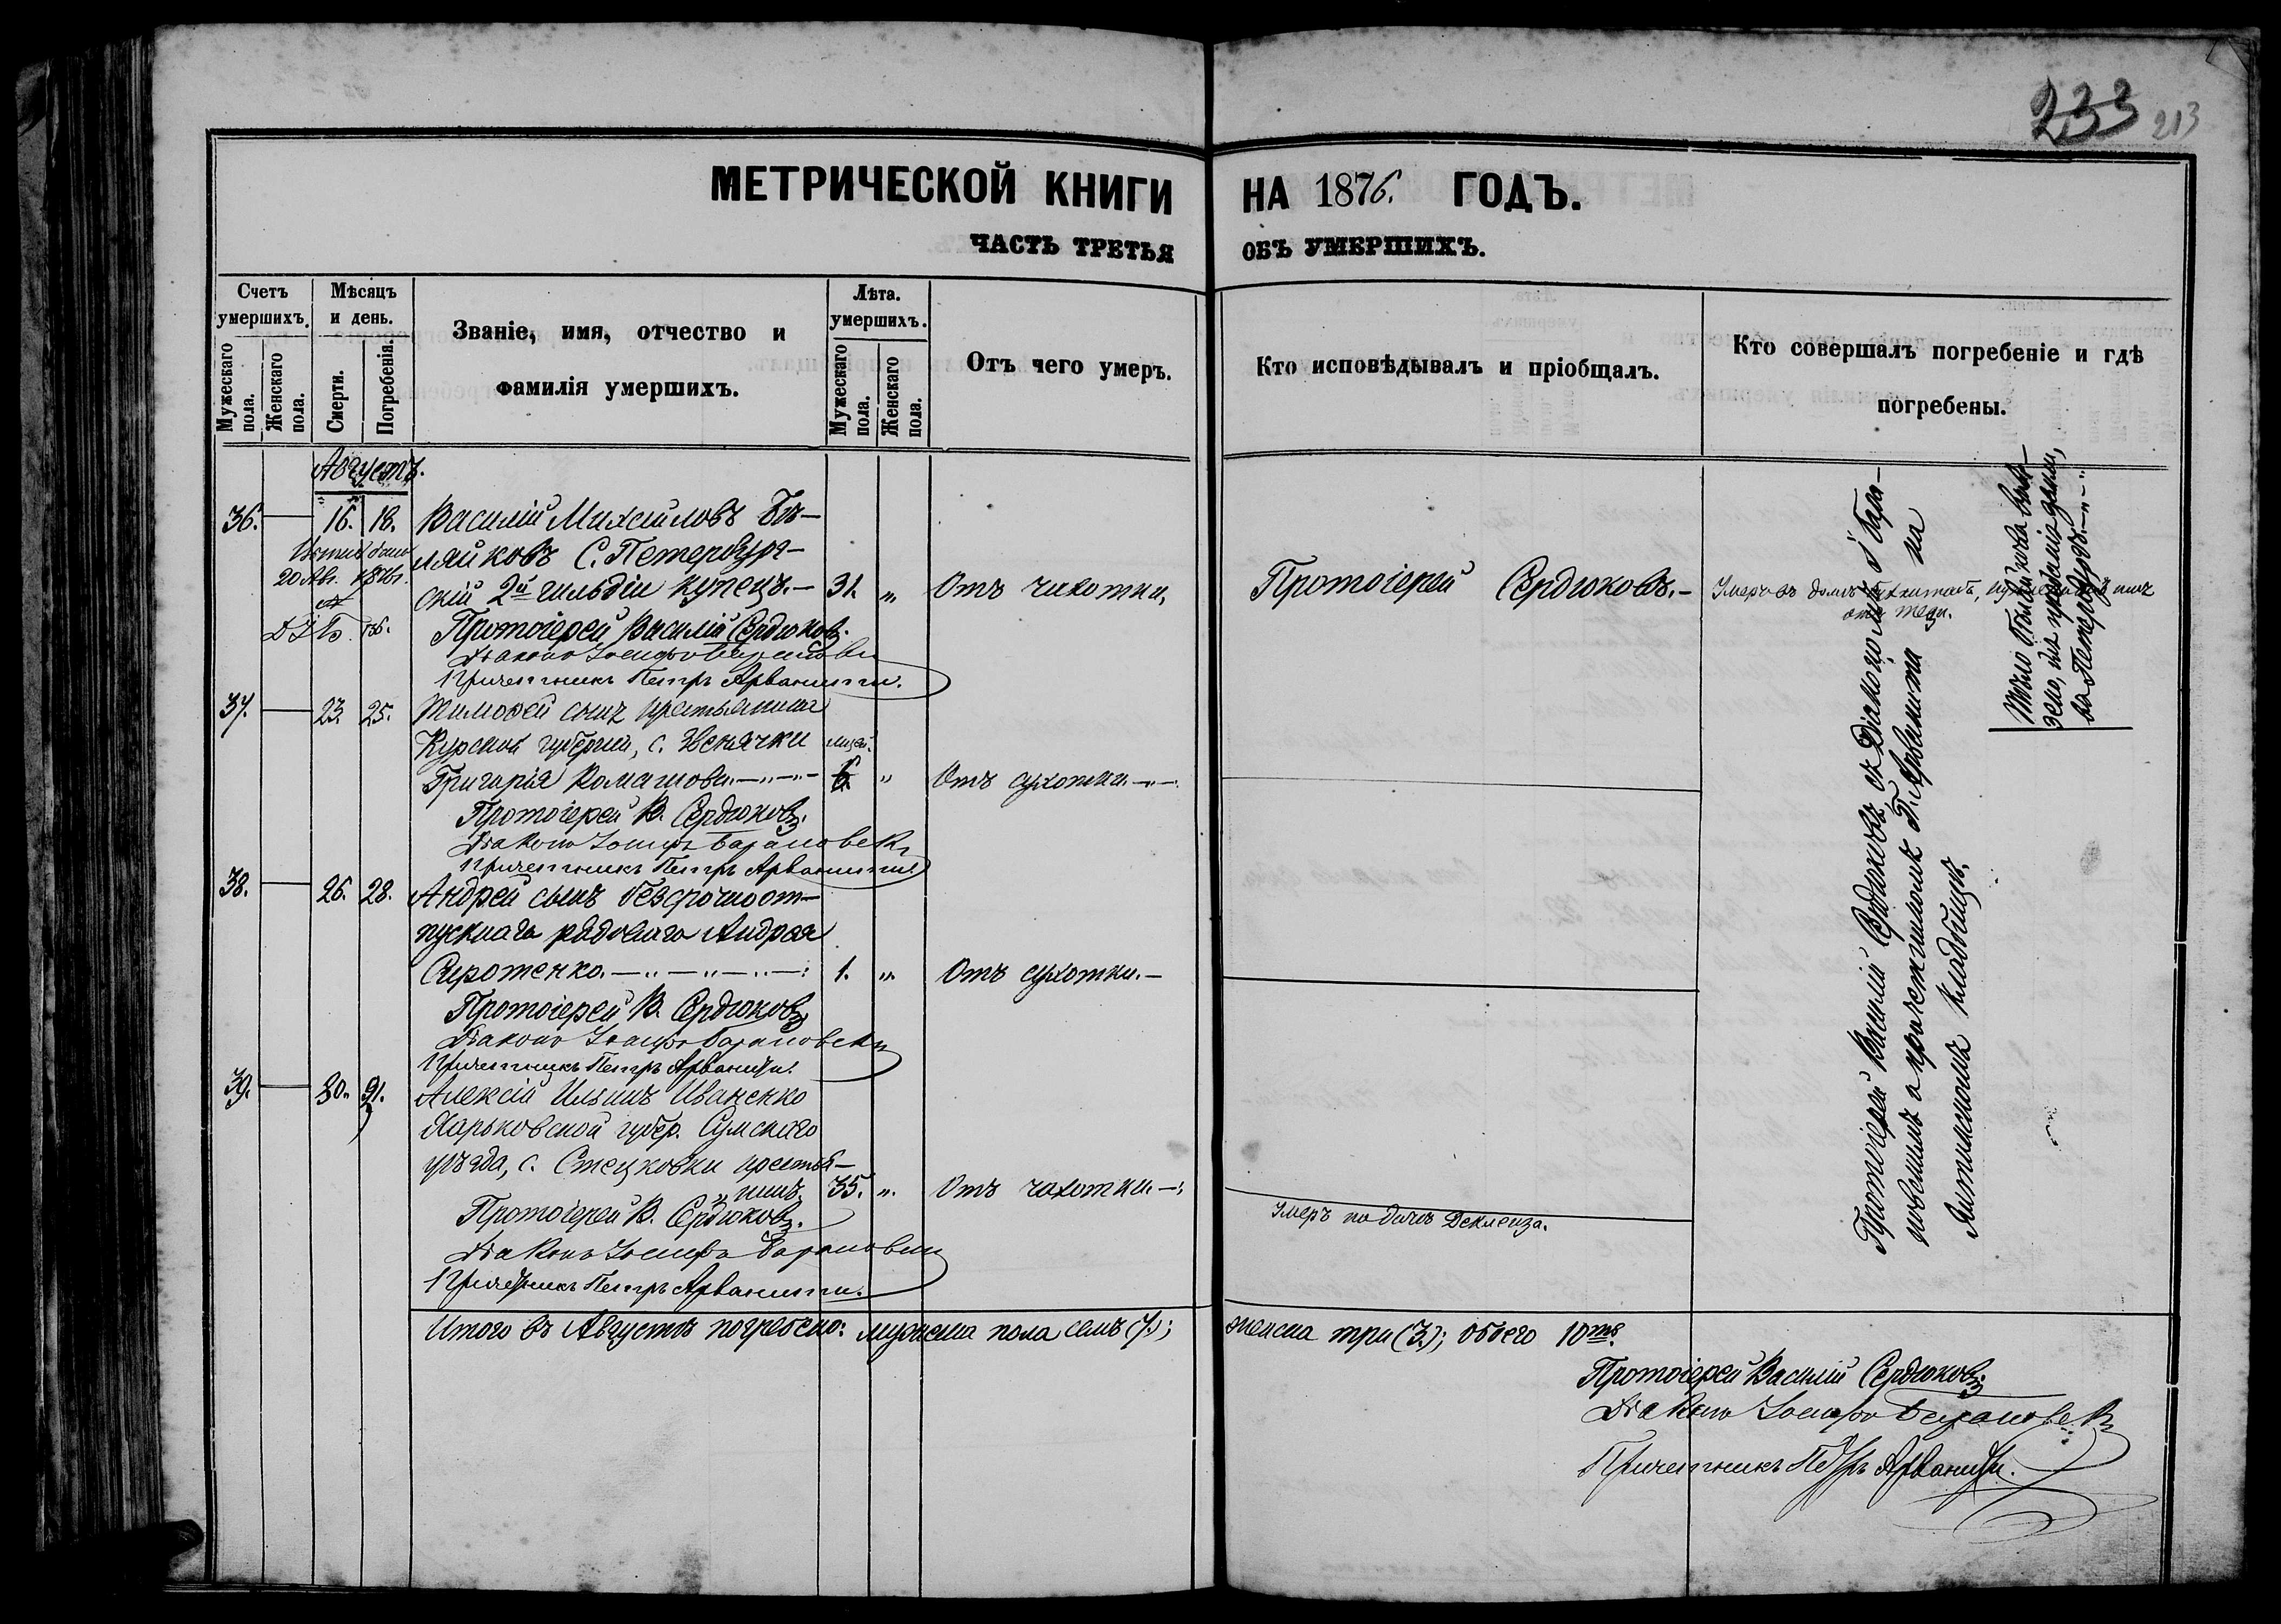 233 213
МЕТРИЧЕСКОЙ КНИГИ НА 1876. ГОДЪ.
ЧАСТЬ ТРЕТЬЯ ОБЪ УМЕРШИХЪ.
Счетъ умершихъ.
Мужескаго пола.
Женскаго пола.
Мѣсяцъ и день.
Смерти.
Погребенія.
Званіе, имя, отчество и
фамилія умершихъ.
Лѣта.
умершихъ.
Мужескаго пола.
Женскаго пола.
Отъ чего умеръ.
Кто исповѣдывалъ и пріобщалъ.
Кто совершалъ погребеніе и гдѣ
погребены.
Августъ.
36. 16. 18. Василій Михаиловъ Бѣ-
ляйковъ С. Петербург-
скій 2й гильдіи купецъ.- 31. „ Отъ чахотки, Протоіерей Сердюковъ.-
20 Авг.
Умеръ въ домѣ
Протоіерей Василій Сердюковъ.
Діаконъ Іосифъ Барановскі
Причетникъ Петръ Арванити.
37. 23. 25. Тимофей сынъ крестьянина
Курской губерніи, с. Звенячки мѣсяц.
Григорія Комашова.-„-„- 6. „ Отъ сухотки.-„-
Протоіерей В. Сердюковъ.
Діаконъ Іосифъ Барановскі
Причетникъ Петръ Арванити.
38. 26. 28. Андрей сынъ безсрочноот-
пускнаго рядоваго Андрея
Сиротенко.-„-„-„-: 1. „ Отъ сухотки.-
Протоіерей В. Сердюковъ
Діаконъ Іосифъ Барановскі
Причетникъ Петръ Арванити.
39. 30. 31. Алексій Ильинъ Иваненко
Харьковской губер. Сумскаго
уѣзда, с. Стецковки крестья-
нинъ. 35. „ Отъ чахотки-:
Умеръ на дачѣ Деклеиза.
Протоіерей В. Сердюковъ.
Діаконъ Іосифъ Барановскі
Причетникъ Петръ Арванити.
Протоіерей Василій Сердюковъ съ Діакономъ І. Бара-
новскимъ и причетникомъ П. Арванити на
кладбищѣ.
Тѣло Бѣляйкова выве-
зено, для преданія земли,
въ Петербургъ.-„-„-
Итого въ Августѣ погребено: мужеска пола семь (7.); женска три (3.); обоего 10ть.
Протоіерей Василій Сердюковъ.
Діаконъ Іосифъ Барановскі
Причетникъ Петръ Арванити.